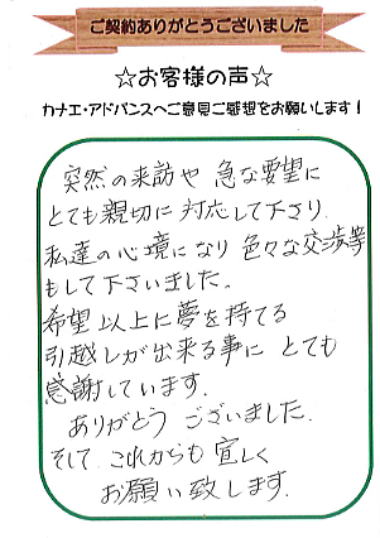 ご契約ありがとうございました
☆お客様の声☆
カナエ・アドバンスへご意見ご感想をお願いします！
突然の来訪や 急な要望に
とても親切に 対応して下さり
私達の心境になり 色々な交渉等
もして下さいました。
希望以上に夢を持てる
引越しが出来る事に とても
感謝しています。
ありがとう ございました。
そして これからも 宜しく
お願い致します。